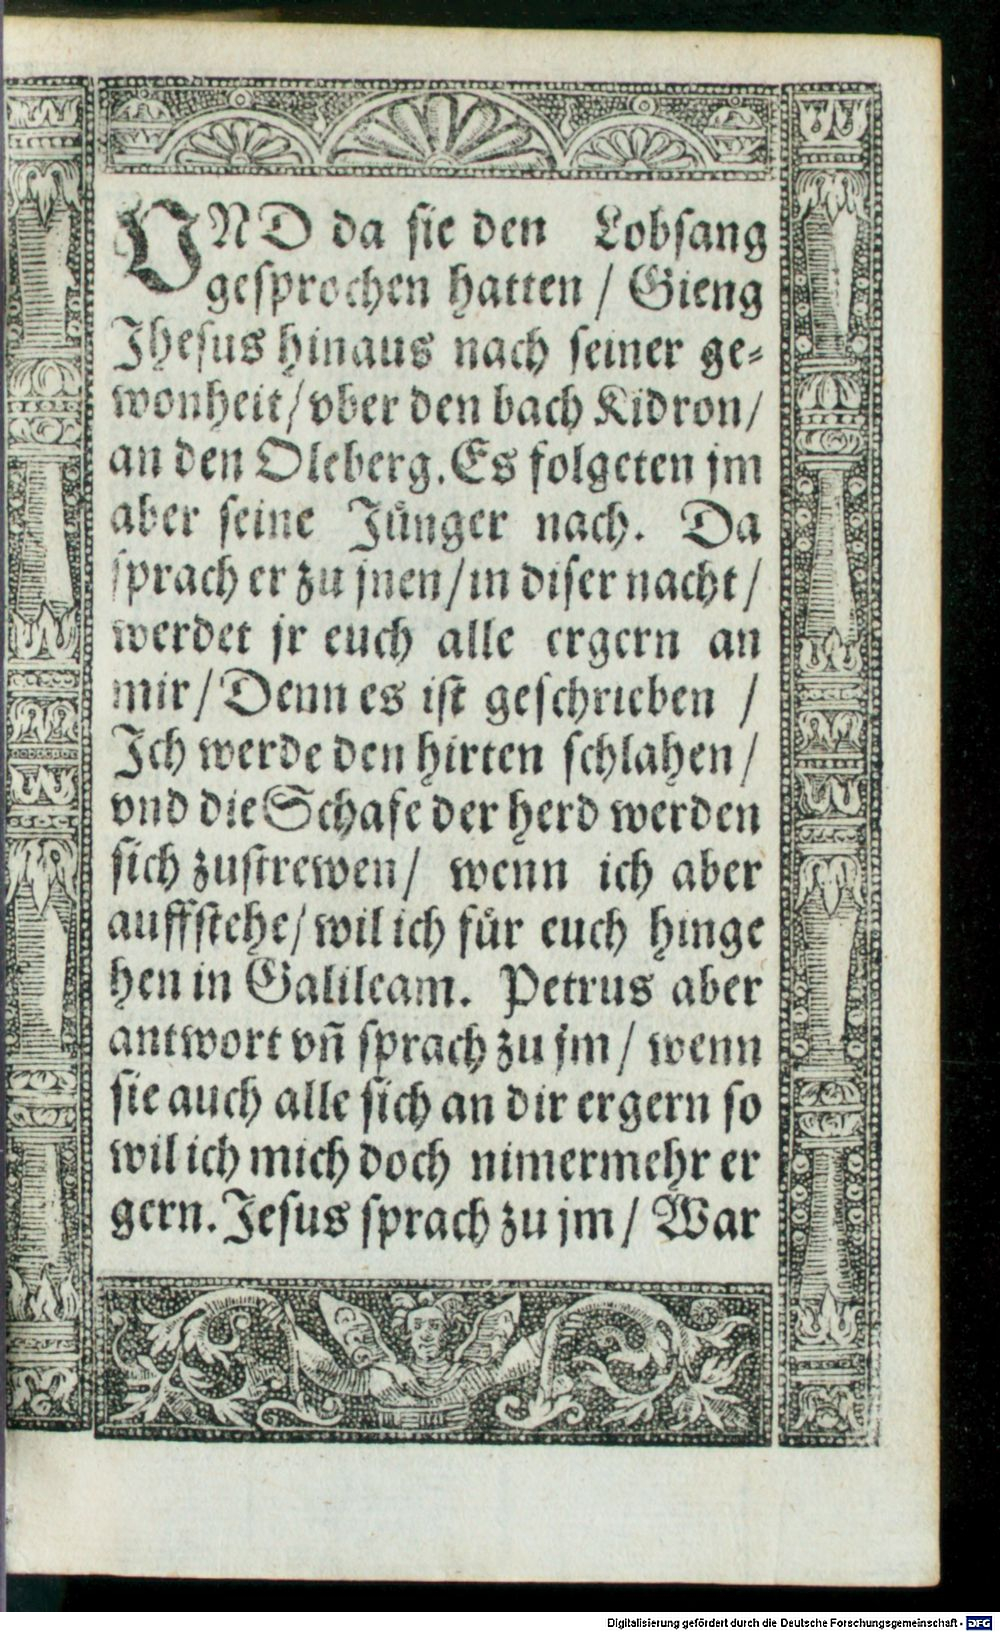 VND da sie den Lobsang
gesprochen hatten / Gieng
Jhesus hinaus nach seiner ge⸗
wonheit / vber den bach Kidron /
an den Oleberg. Es folgeten jm
aber seine Jünger nach. Da
sprach er zu jnen / in diser nacht /
werdet jr euch alle ergern an
mir / Denn es ist geschrieben /
Ich werde den hirten schlahen /
vnd die Schafe der herd werden
sich zustrewen / wenn ich aber
auffstehe / wil ich für euch hinge
hen in Galileam. Petrus aber
antwort vñ sprach zu jm / wenn
sie auch alle sich an dir ergern so
wil ich mich doch nimermehr er
gern. Jesus sprach zu jm / War
Digitalisierung gefördert durch die Deutsche Forschungsgemeinschaft - DFG